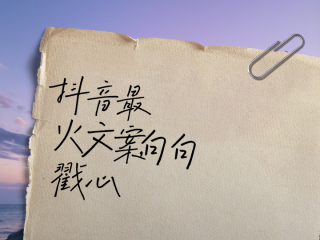 抖音最
火文案句句
戳心